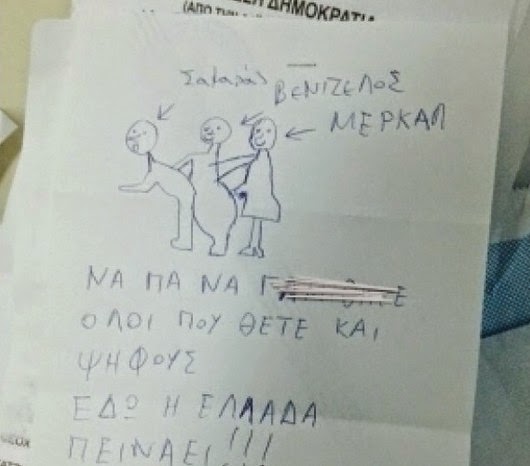 ΔΗΜΟΚΡΑΤΙΑ
(ΑΠΟ ΤΗΝ
Σαμαράς ΒΕΝΙΖΕΛΟΣ
ΜΕΡΚΑΛ
ΝΑ ΠΑ ΝΑ Γ
ΟΛΟΙ ΠΟΥ ΘΕΤΕ ΚΑΙ
ΨΗΦΟΥΣ
ΕΔΩ Η ΕΛΛΑΔΑ
ΠΕΙΝΑΕΙ!!!